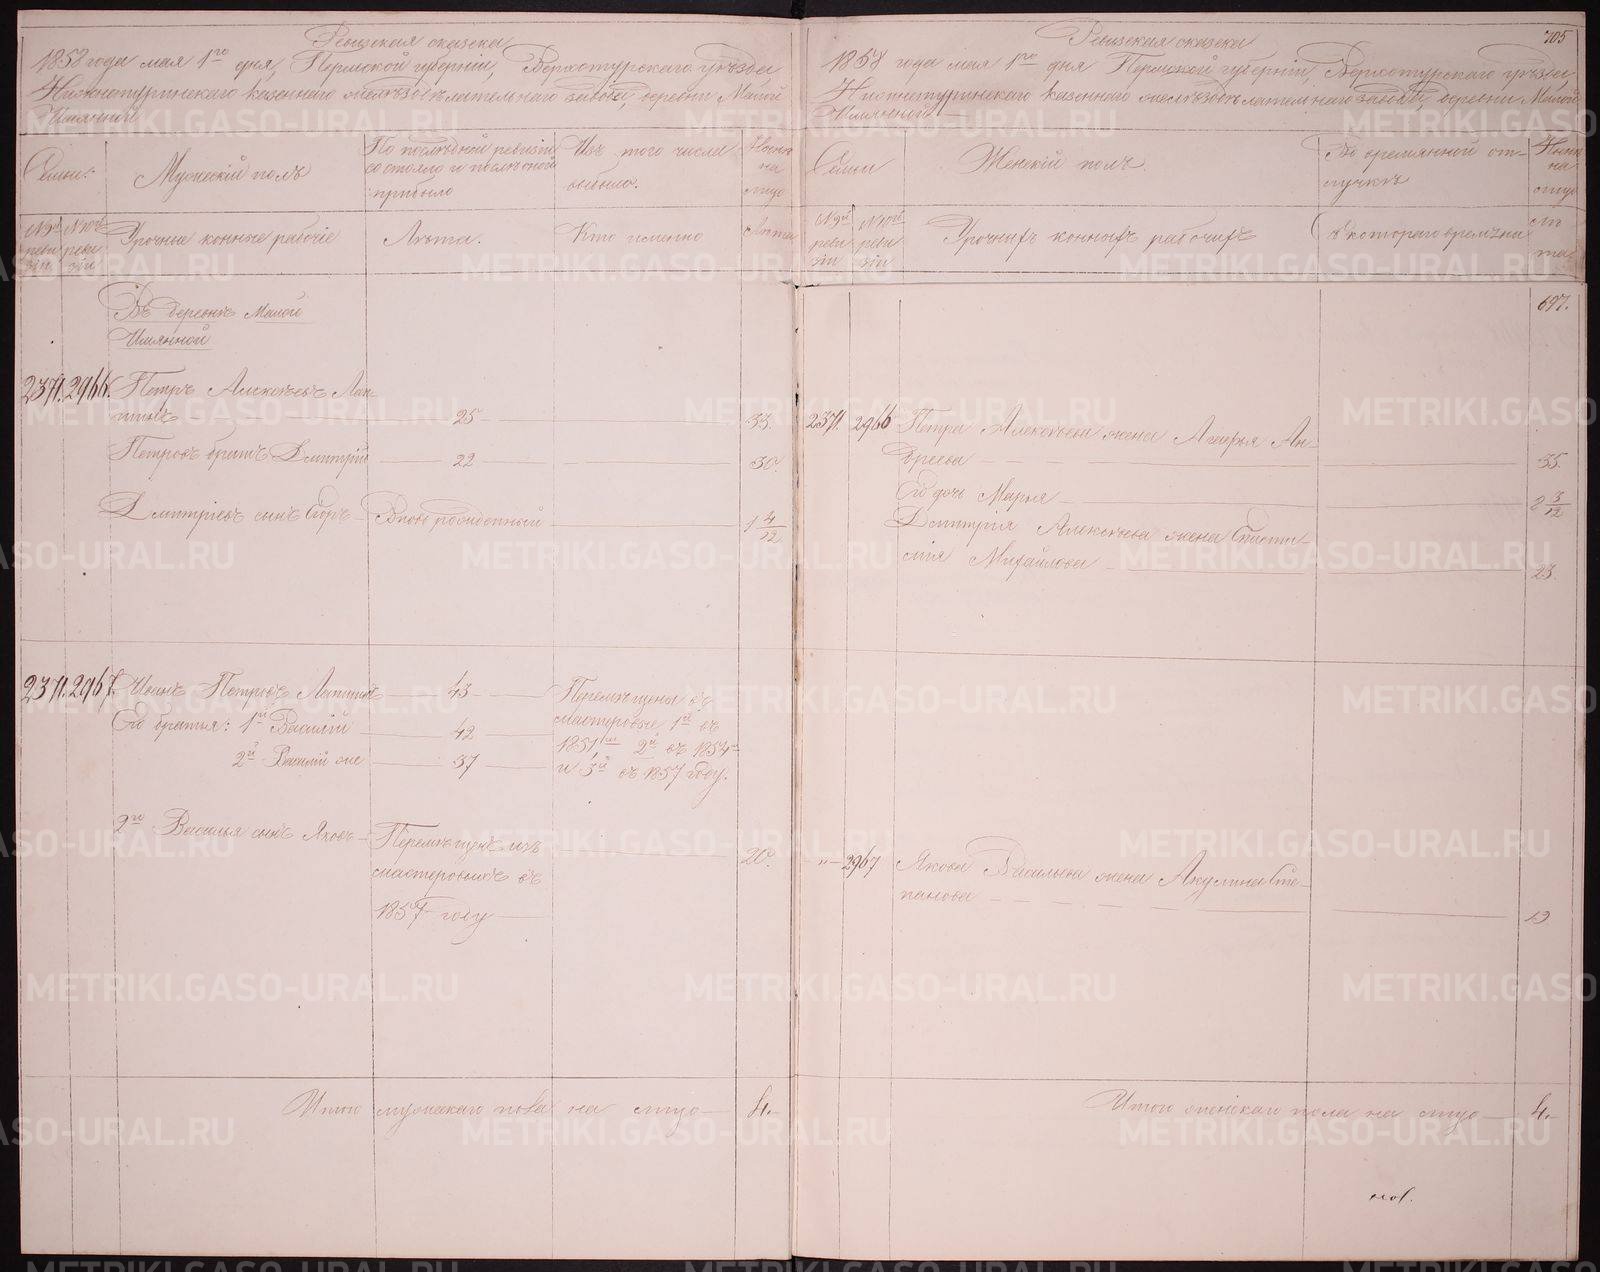 Ревизская сказка
1858 года мая 1го дня, Пермской губернии, Верхотурскаго уезда
Нижнетуринскаго казеннаго железоделательнаго завода, деревни Малой
Именной
Семьи:
Мужескій полъ
По последней ревизіи
состояло и после оной
прибыло
Изъ того числа
выбыло.
Ныне
на
лицо
№ 9й
реви
зіи
№ 10й
реви
зіи
Урочные конные рабочіе
Лета.
Кто именно
Лета
Въ деревне Малой
Имянной
2371. 2966. Петръ Алексеевъ Лап-
тевъ 25 33.
Петровъ братъ Дмитрій 22 30.
Дмитріевъ сынъ Егоръ Вновь рожденный 1 4/12
2371. 2967. Иванъ Петровъ 43 Перемещены въ
Его братья: 1й Василій 42 мастеровые, 1й въ
1851, 2й въ 1854
2й Василій же 37 и 3й въ 1857 году.
2го Василья сынъ Яковъ Перемещенъ изъ 20.
мастеровыхъ въ
1857 году
Итого мужескаго пола на лицо 4.
705
Ревизская сказка
1858 года мая 1го дня Пермской губерніи, Верхотурскаго уезда
Нижнетуринскаго казеннаго железоделательнаго завода, деревни Малой
Имянной
Семьи
Женскій полъ.
Во временной от-
лучке
Ныне
на
лицо
№ 9й
реви
зіи
№ 10й
реви
зіи
Урочныхъ конныхъ рабочихъ
Съ котораго времени
Ле
та
697.
2371. 2966 Петра Алексеева жена Ан-
дреева 35.
Его дочь Марья 8 3/12
Дмитрія Алексеева жена
Михайлова 23.
" 2967 Якова Васильева жена Акулина Сте-
панова 19
Итого женскаго пола на лицо 4.
METRIKI.GASO-URAL.RU